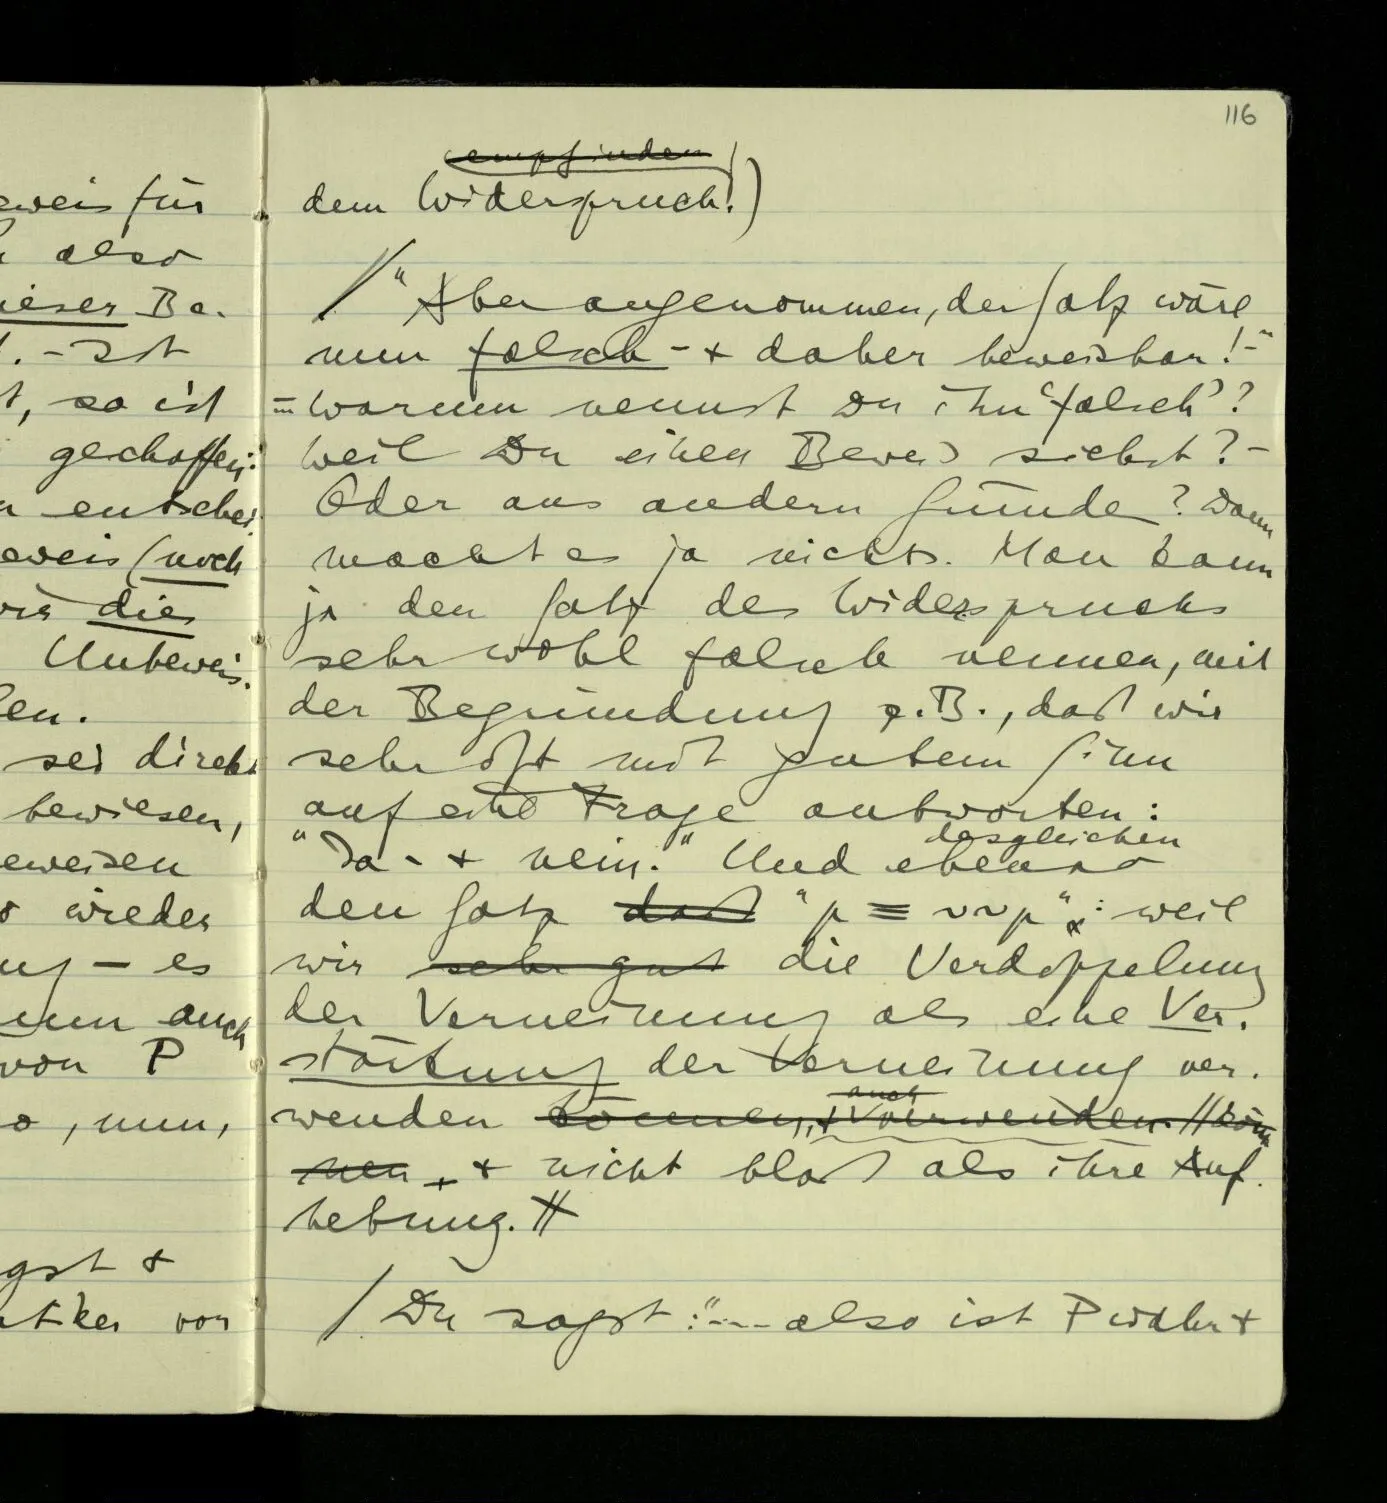 116
empfinden
dem Widerspruch!)
// "Aber angenommen, der Satz wäre
nun falsch – + daher beweisbar! –"
– Warum nennst Du ihn 'falsch'?
Weil Du einen Beweis siehst? –
Oder aus andern Gründe? Dann
macht es ja nichts. Man kann
ja den Satz des Widerspruchs
sehr wohl falsch nennen, mit
der Begründung z.B., daß wir
sehr oft mit gutem Sinn
auf eine Frage antworten:
"Ja – + nein." Und ebenso
desgleichen
den Satz daß "p ≡ ~~p": weil
wir sehr gut die Verdoppelung
der Verneinung als eine Ver-
stärkung der Verneinung ver-
wenden können, + auch verwenden. // kön-
nen + nicht bloß als ihre Auf-
hebung. //
/ Du sagst: "... also ist P wahr +
eweis für
also
ieser Be-
. – Ist
t, so ist
geschaffen:
n entschei-
eweis (noch
die
Unbeweis-
en.
sei direkt
bewiesen,
eweisen
o wieder
ng – es
nun auch
von P
o, nun,
gst +
tiker vor